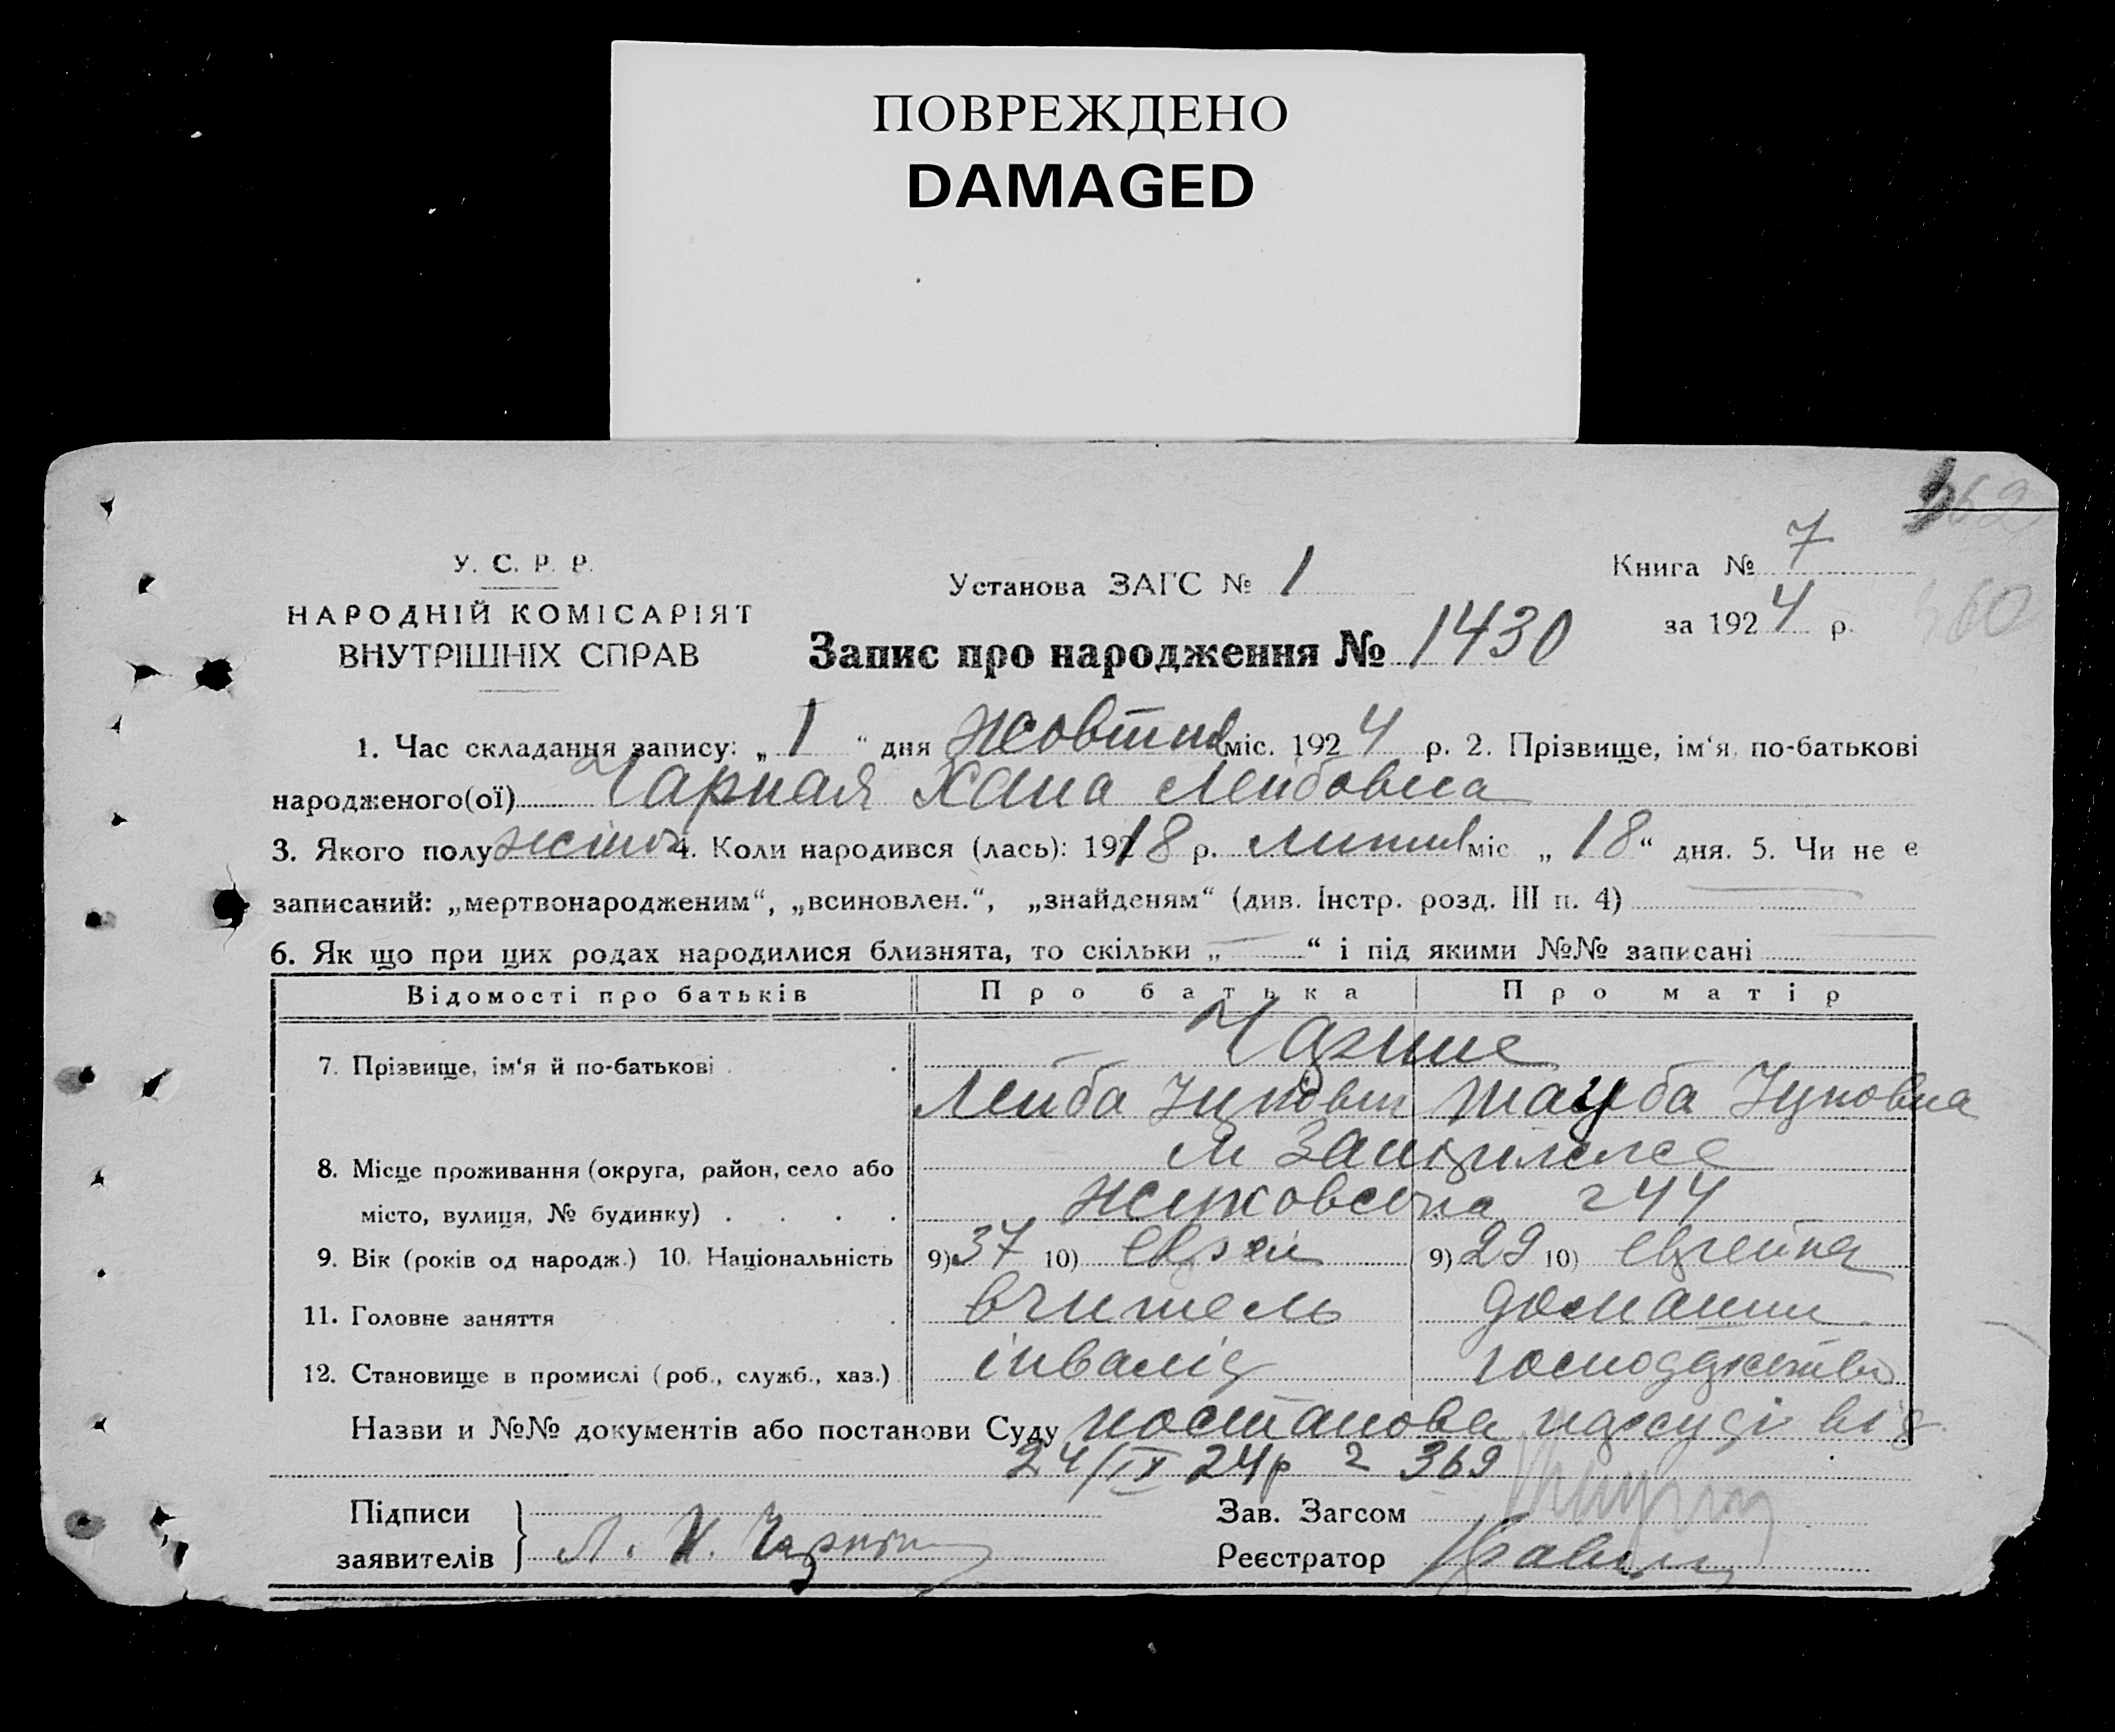 ПОВРЕЖДЕНО
DAMAGED
362
У. С. Р. Р.
Установа ЗАГС № 1
Книга № 7
НАРОДНІЙ КОМІСАРІЯТ
ВНУТРІШНІХ СПРАВ
за 1924 р.
360
Запис про народження № 1430
1. Час складання запису: „ 1 “ дня жовтня міс. 1924 р. 2. Прізвище, ім‘я, по-батькові
народженого(ої) Чарная Хана Лейбовна
3. Якого полу жіноч 4. Коли народився (лась): 1918 р. лютня міс „ 18 “ дня. 5. Чи не е
записаний: „мертвонародженим“, „всиновлен.“, „знайденям“ (див. Інстр. розд. III п. 4)
6. Як що при цих родах народилися близнята, то скільки „ — “ і під якими №№ записані
Відомості про батьків Про батька Про матір
7. Прізвище, ім‘я й по-батькові Чарние
Лейба Ицкович Тауба Ицковна
8. Місце проживання (округа, район, село або
місто, вулиця, № будинку) 44
9. Вік (років од народж.) 10. Національність 9) 37 10) еврей 9) 29 10) еврейка
11. Головне заняття вчитель домашн
12. Становище в промислі (роб., служб., хаз.) інвалід господарство
Назви и №№ документів або постанови Суду постанова нарсуді від
24/IX 24р 369
Підписи
заявителів } Л. И. Чарный
Зав. Загсом
Реєстратор